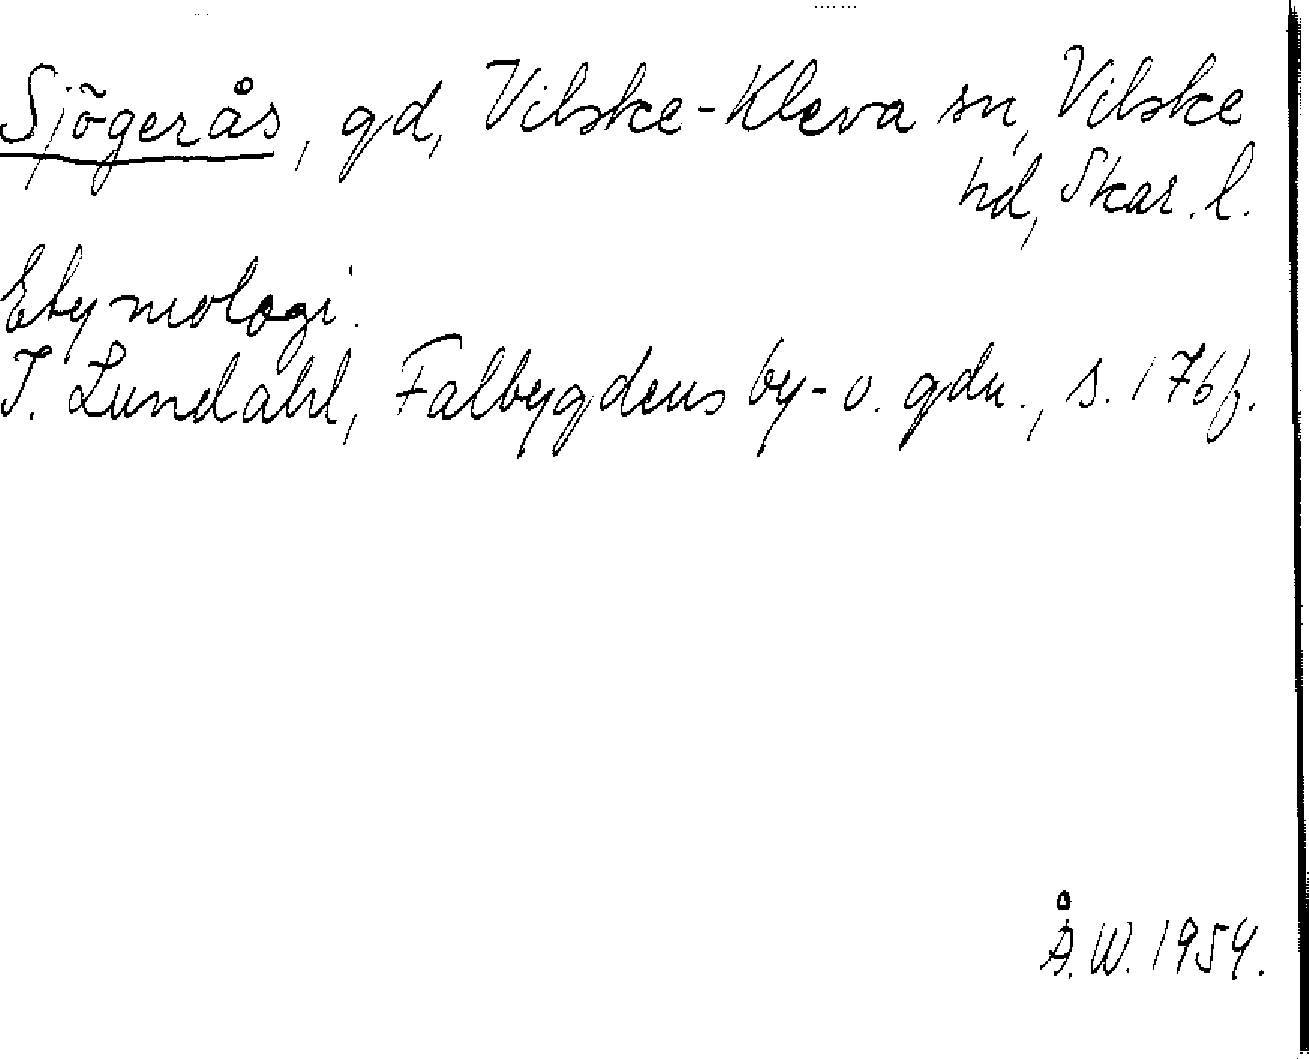 Sjögerås, gd, Vilske-Kleva sn, Vilske
hd, Skar. l.
Etymologi.
I. Lundahl, Falbygdens by- o. gdn., s. 176f.
Å.W. 1954.